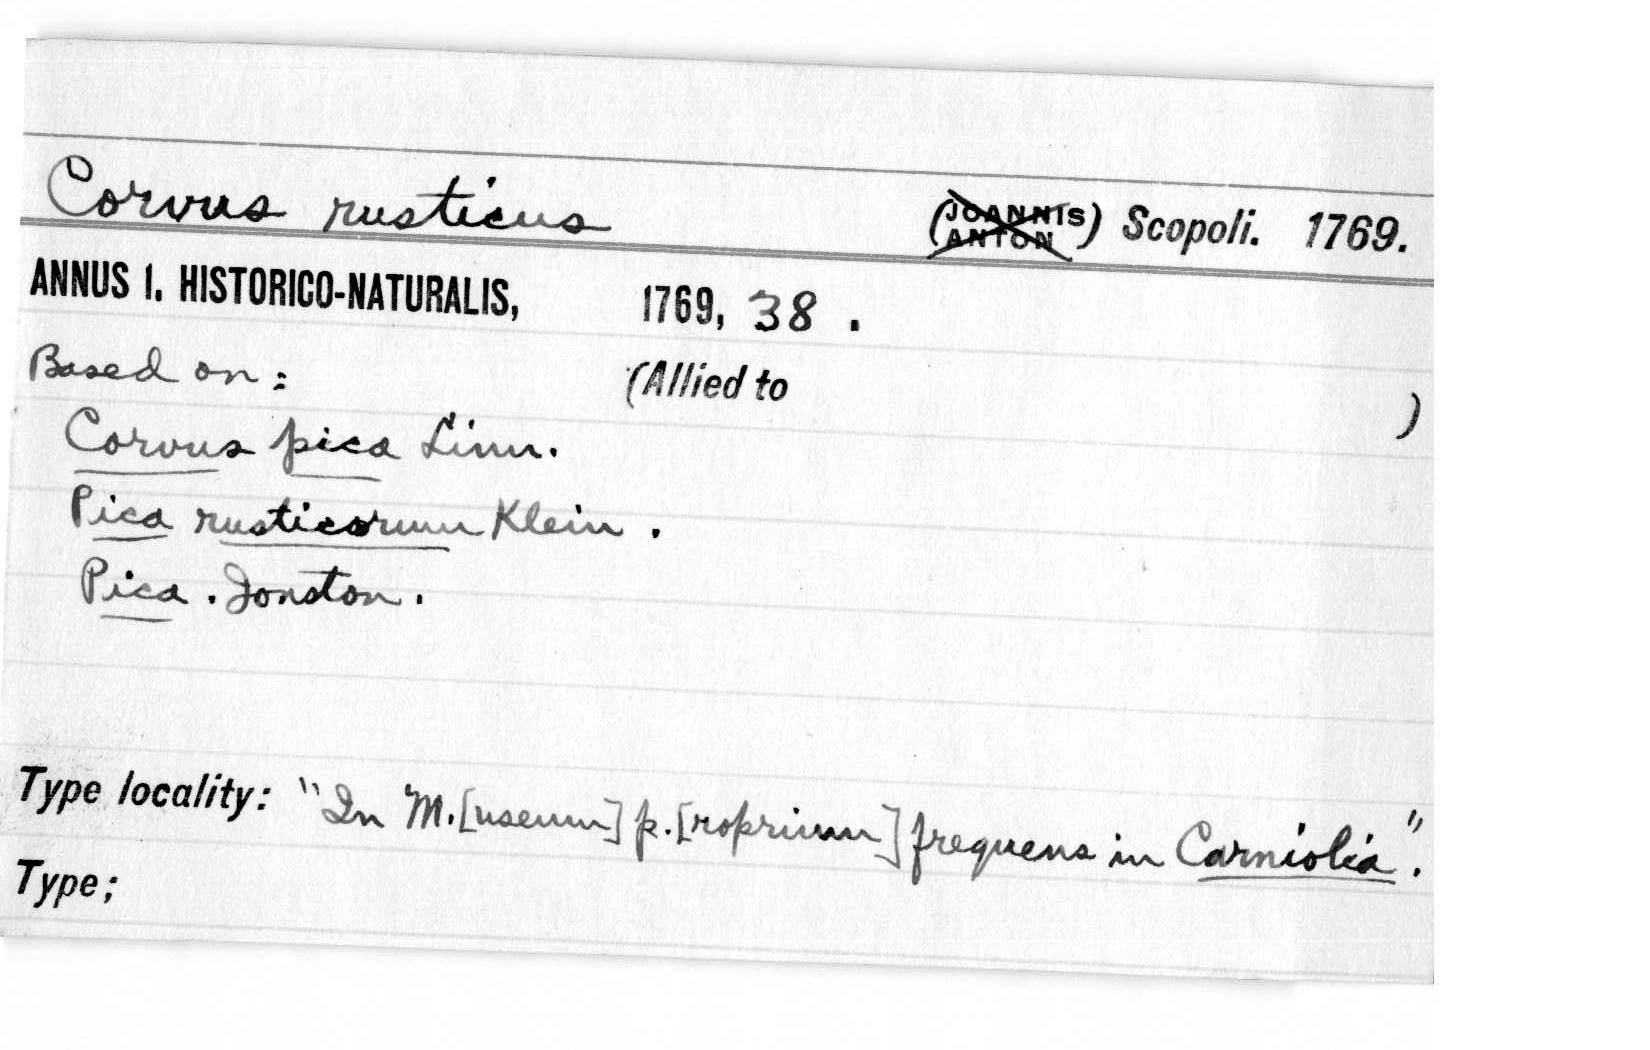 Corvus rusticus (JOANNIS ANTON) Scopoli. 1769.
ANNUS I. HISTORICO-NATURALIS, 1769, 38 .
Based on : (Allied to )
Corvus pica Linn.
Pica rusticorum Klein .
Pica . Jonston .
Type locality: "In M.[useum] p.[roprium] frequens in Carniolia".
Type;